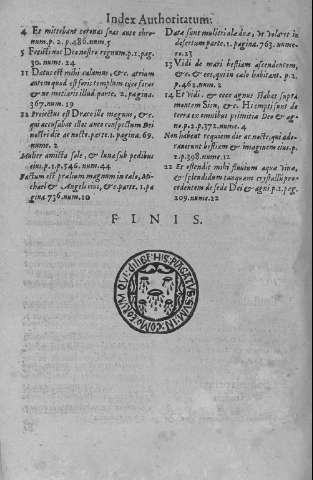 Index Authoritatum.
4 Et mittebant coronas suas ante thro-
num. p. 2. p. 486. num. 5
5 Fecisti nos Deo nostro regnum. p. 1. pag.
30. nume. 24
11 Datus est mihi calamus, &c. atrium
autem quod est foris templum eijce foras
& ne metiaris illud. parte. 2. pagina.
367. num. 19
12 Proiectus est Draco ille magnus, &c.
qui accusabat illos ante conspectum Dei
nostri die ac nocte. parte. 1. pagina. 69.
nume. 2
Mulier amicta sole, & luna sub pedibus
eius. p. 1. p. 546. num. 44
Factum est praelium magnum in caelo, Mi-
chael & Angeli eius, &c. parte. 1. pa
gina 736. num. 10
Datae sunt mulieri alae duae, ut volaret in
desertum parte. 1. pagina. 763. nume-
ro. 23
13 Vidi de mari bestiam ascendentem,
p. 462. num. 2
14 Et vidi. & ecce agnus stabat supra
montem Sion, &c. Hi empti sunt de
terra ex omnibus primitiae Deo & ag-
no p. 2. p. 372. nume. 4
Non habent requiem die ac nocte, qui ado-
rauerunt bestiam & imaginem eius. p.
2. p. 398. num. 12
22 Et ostendit mihi fluuium aquae vivae,
& splendidum tanquam crystallum pro-
cedentem de sede Dei & agni p. 1. pag.
209. nume. 22
F I N I S.